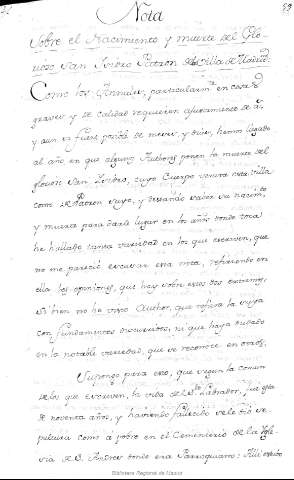 Nota
Sobre el Nacimiento y muerte del Glo-
rioso San Isidro Patron de la Villa de Madrid
Como los Annales, particularmte en cosas
graves y de calidad requieren ajustamiento de a
y aun si fuere posible de meses, y dias, hemos llegado
al año en que algunos Authores ponen la muerte del
glorioso San Isidro, cuyo Cuerpo venera esta Villa
como de Patron suyo, y deseando saber su nacimto
y muerte para darle lugar en los años donde toca
he hallado tanta variedad en los que escriven, que
no me pareció escusar esta nota, refiriendo en
ella las opiniones, que hay sobre estos dos extremos,
si bien no he visto Author, que refiera la suya
con fundamentos discurridos, ni que haya dudado
en la notable variedad, que se reconoce en otros.
Supongo para esto, que segun la comun
de los que escriven, la vida del Sto Labrador, fue
de noventa años, y haviendo fallecido se le dió se-
pultura como a pobre en el Cementerio de la Igle-
sia de S. Andres donde era Parroquiano: Alli estubo
Biblioteca Regional de Madrid